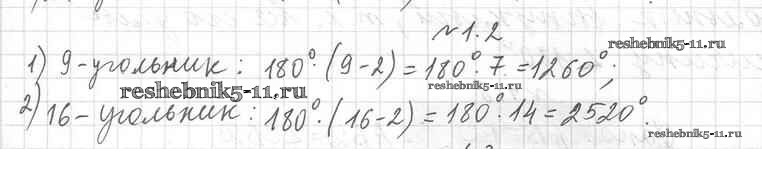 №1.2
reshebnik5-11.ru
1) 9-угольник: 180°·(9-2)=180°·7=1260°;
reshebnik5-11.ru
reshebnik5-11.ru
2) 16-угольник: 180°·(16-2)=180°·14=2520°.
reshebnik5-11.ru